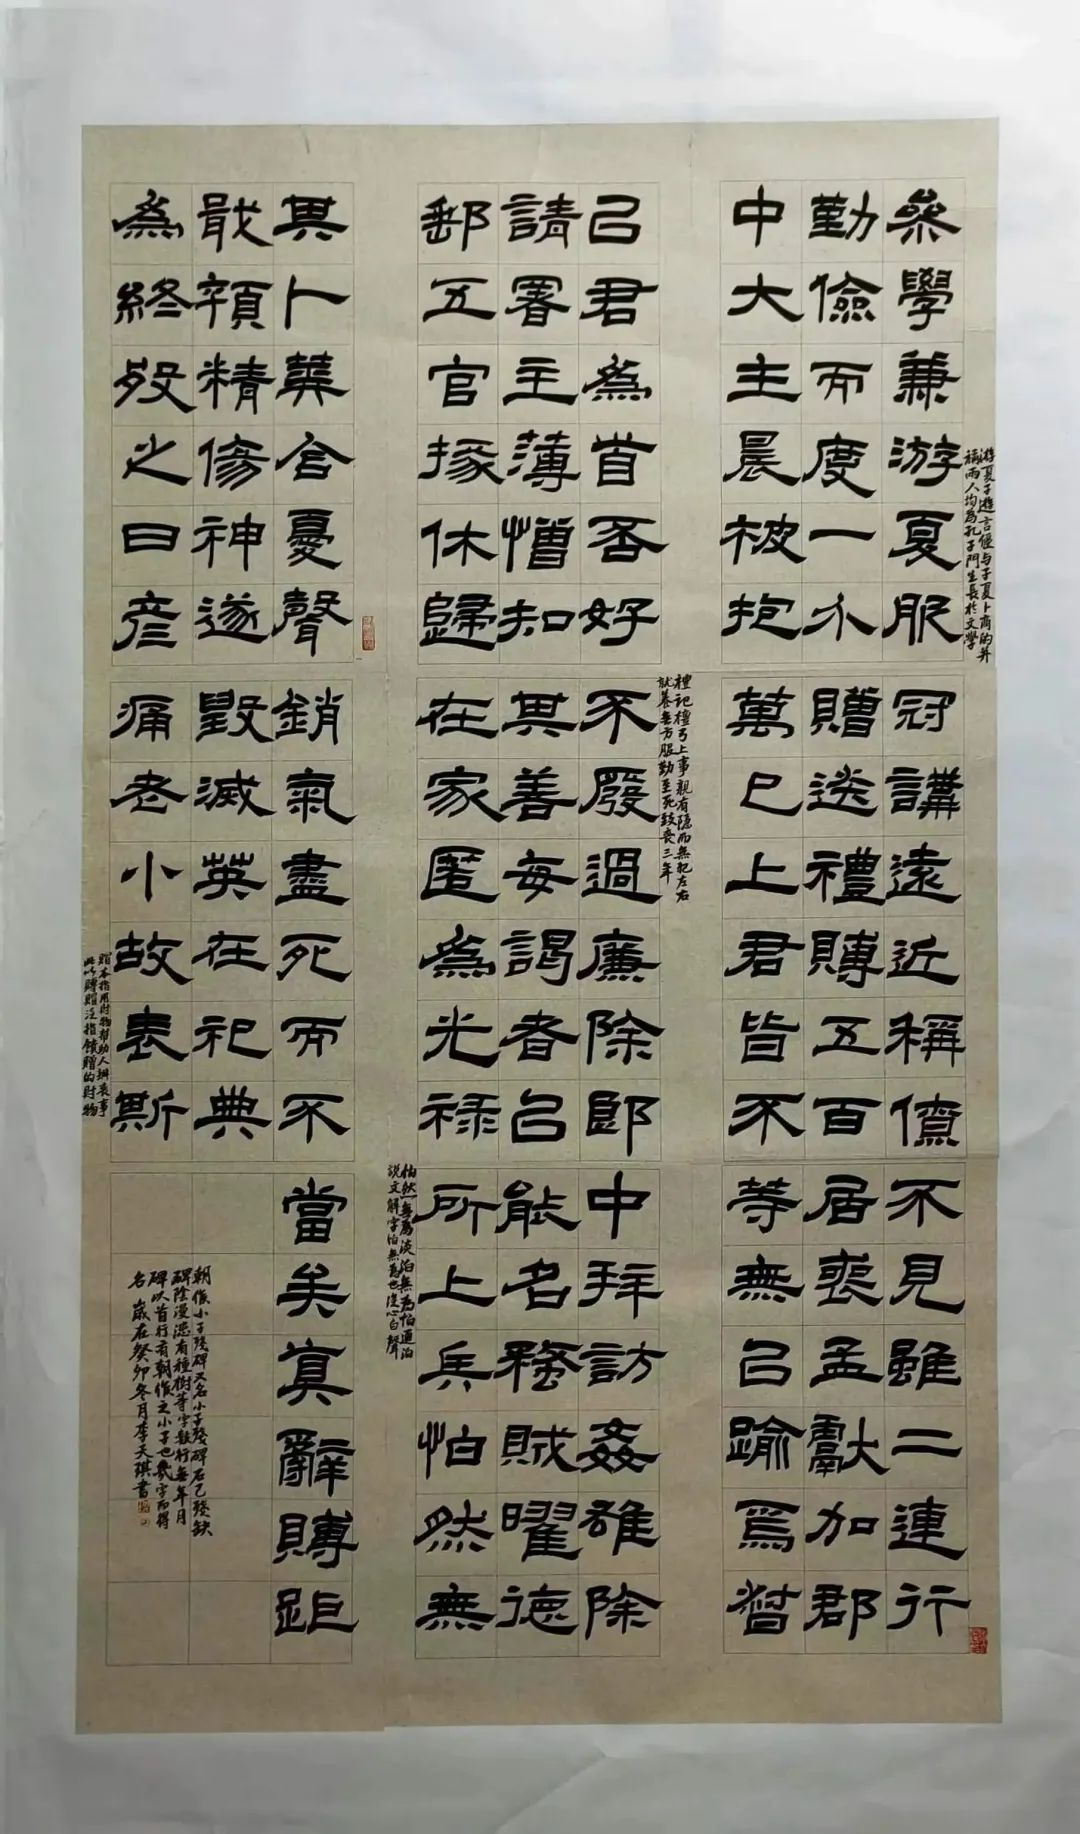 叅學兼游夏服冠講遠近稱僨不見雖二連行
勤儉而度一小贈送禮賻五百居喪孟獻加郡
中大主晨被抱萬已上君皆不等無以踰焉督
以君為首否好不廢過廉除郎中拜訪姦雄除
請署主薄憎知其善每謁者以能名蝥賊曜德
郵五官掾休歸在家匿為光祿所上兵怕然無
其卜葬含憂聲銷氣盡死而不當矣真辭賻距
戢顇精傷神遂毀滅英在祀典
為終歿之日彦痛老小故表斯
游夏子遊言偃与子夏卜商的并
稱兩人均為孔子門生長於文學
禮記檀弓上事親有隱而無犯左右
就養無方服勤至死致喪三年
怕然無為淡泊無為怕通泊
說文解字怕無為也從心白聲
賵本指用財物幫助人辦喪事
此以賻贈泛指饋贈的財物
朝侯小子殘碑又名小子殘碑石已殘缺
碑陰漫漶有種樹等字數行無年月
碑以首行有朝侯之小子也幾字而得
名 歲在癸卯冬月李天琪書